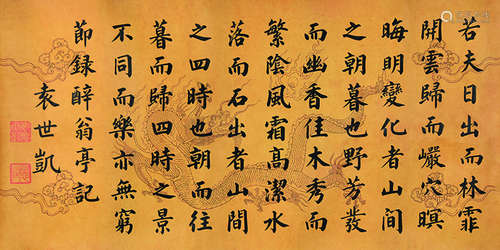 若夫日出而林霏
開雲歸而巖穴暝
晦明變化者山間
之朝暮也野芳發
而幽香佳木秀而
繁陰風霜高潔水
落而石出者山間
之四時也朝而往
暮而歸四時之景
不同而樂亦無窮
節録醉翁亭記
袁世凱